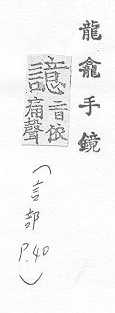 龍龕手鏡
譩
音依
痛聲
(言部 P.40)